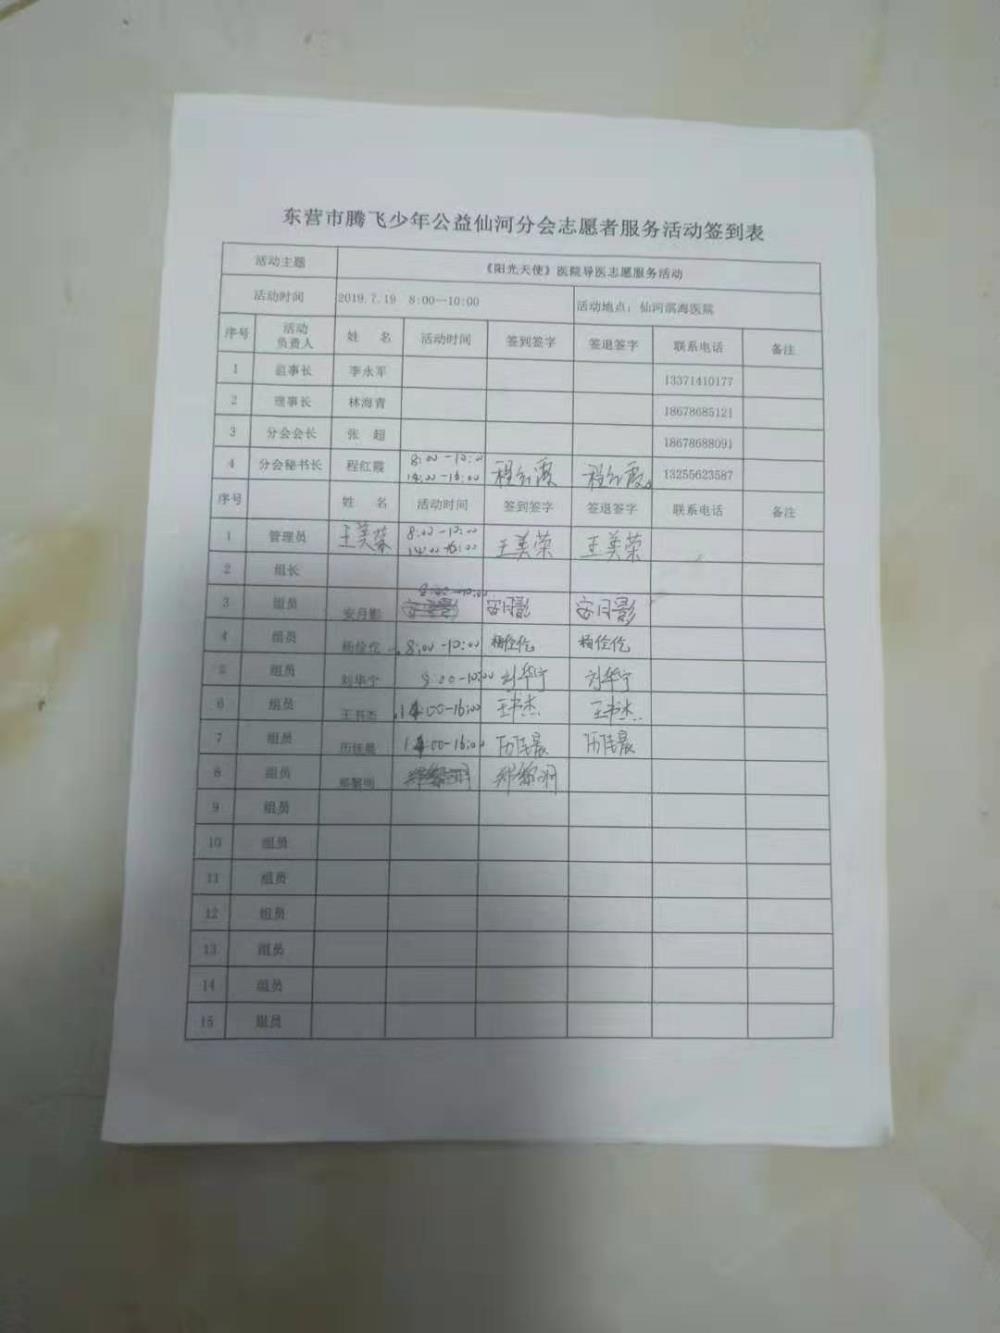 东营市腾飞少年公益仙河分会志愿者服务活动签到表
活动主题 《阳光天使》医院导医志愿服务活动
活动时间 2019.7.19 8:00—10:00 活动地点：仙河滨海医院
序号 活动负责人 姓 名 活动时间 签到签字 签退签字 联系电话 备注
1 监事长 李永军 13371410177
2 理事长 林海青 18678685121
3 分会会长 张 超 18678688091
4 分会秘书长 程红霞 8:00-10:00 14:00-16:00 程红霞 程红霞 13255623587
序号 姓 名 活动时间 签到签字 签退签字 联系电话 备注
1 管理员 王美荣 8:00-10:00 14:00-16:00 王美荣 王美荣
2 组长
3 组员 安月影 8:00-10:00 安月影 安月影
4 组员 杨佺佗 8:00-10:00 杨佺佗 杨佺佗
5 组员 刘华宁 8:00-10:00 刘华宁 刘华宁
6 组员 王书杰 14:00-16:00 王书杰 王书杰
7 组员 历佳晨 14:00-16:00 历佳晨 历佳晨
8 组员
9 组员
10 组员
11 组员
12 组员
13 组员
14 组员
15 组员